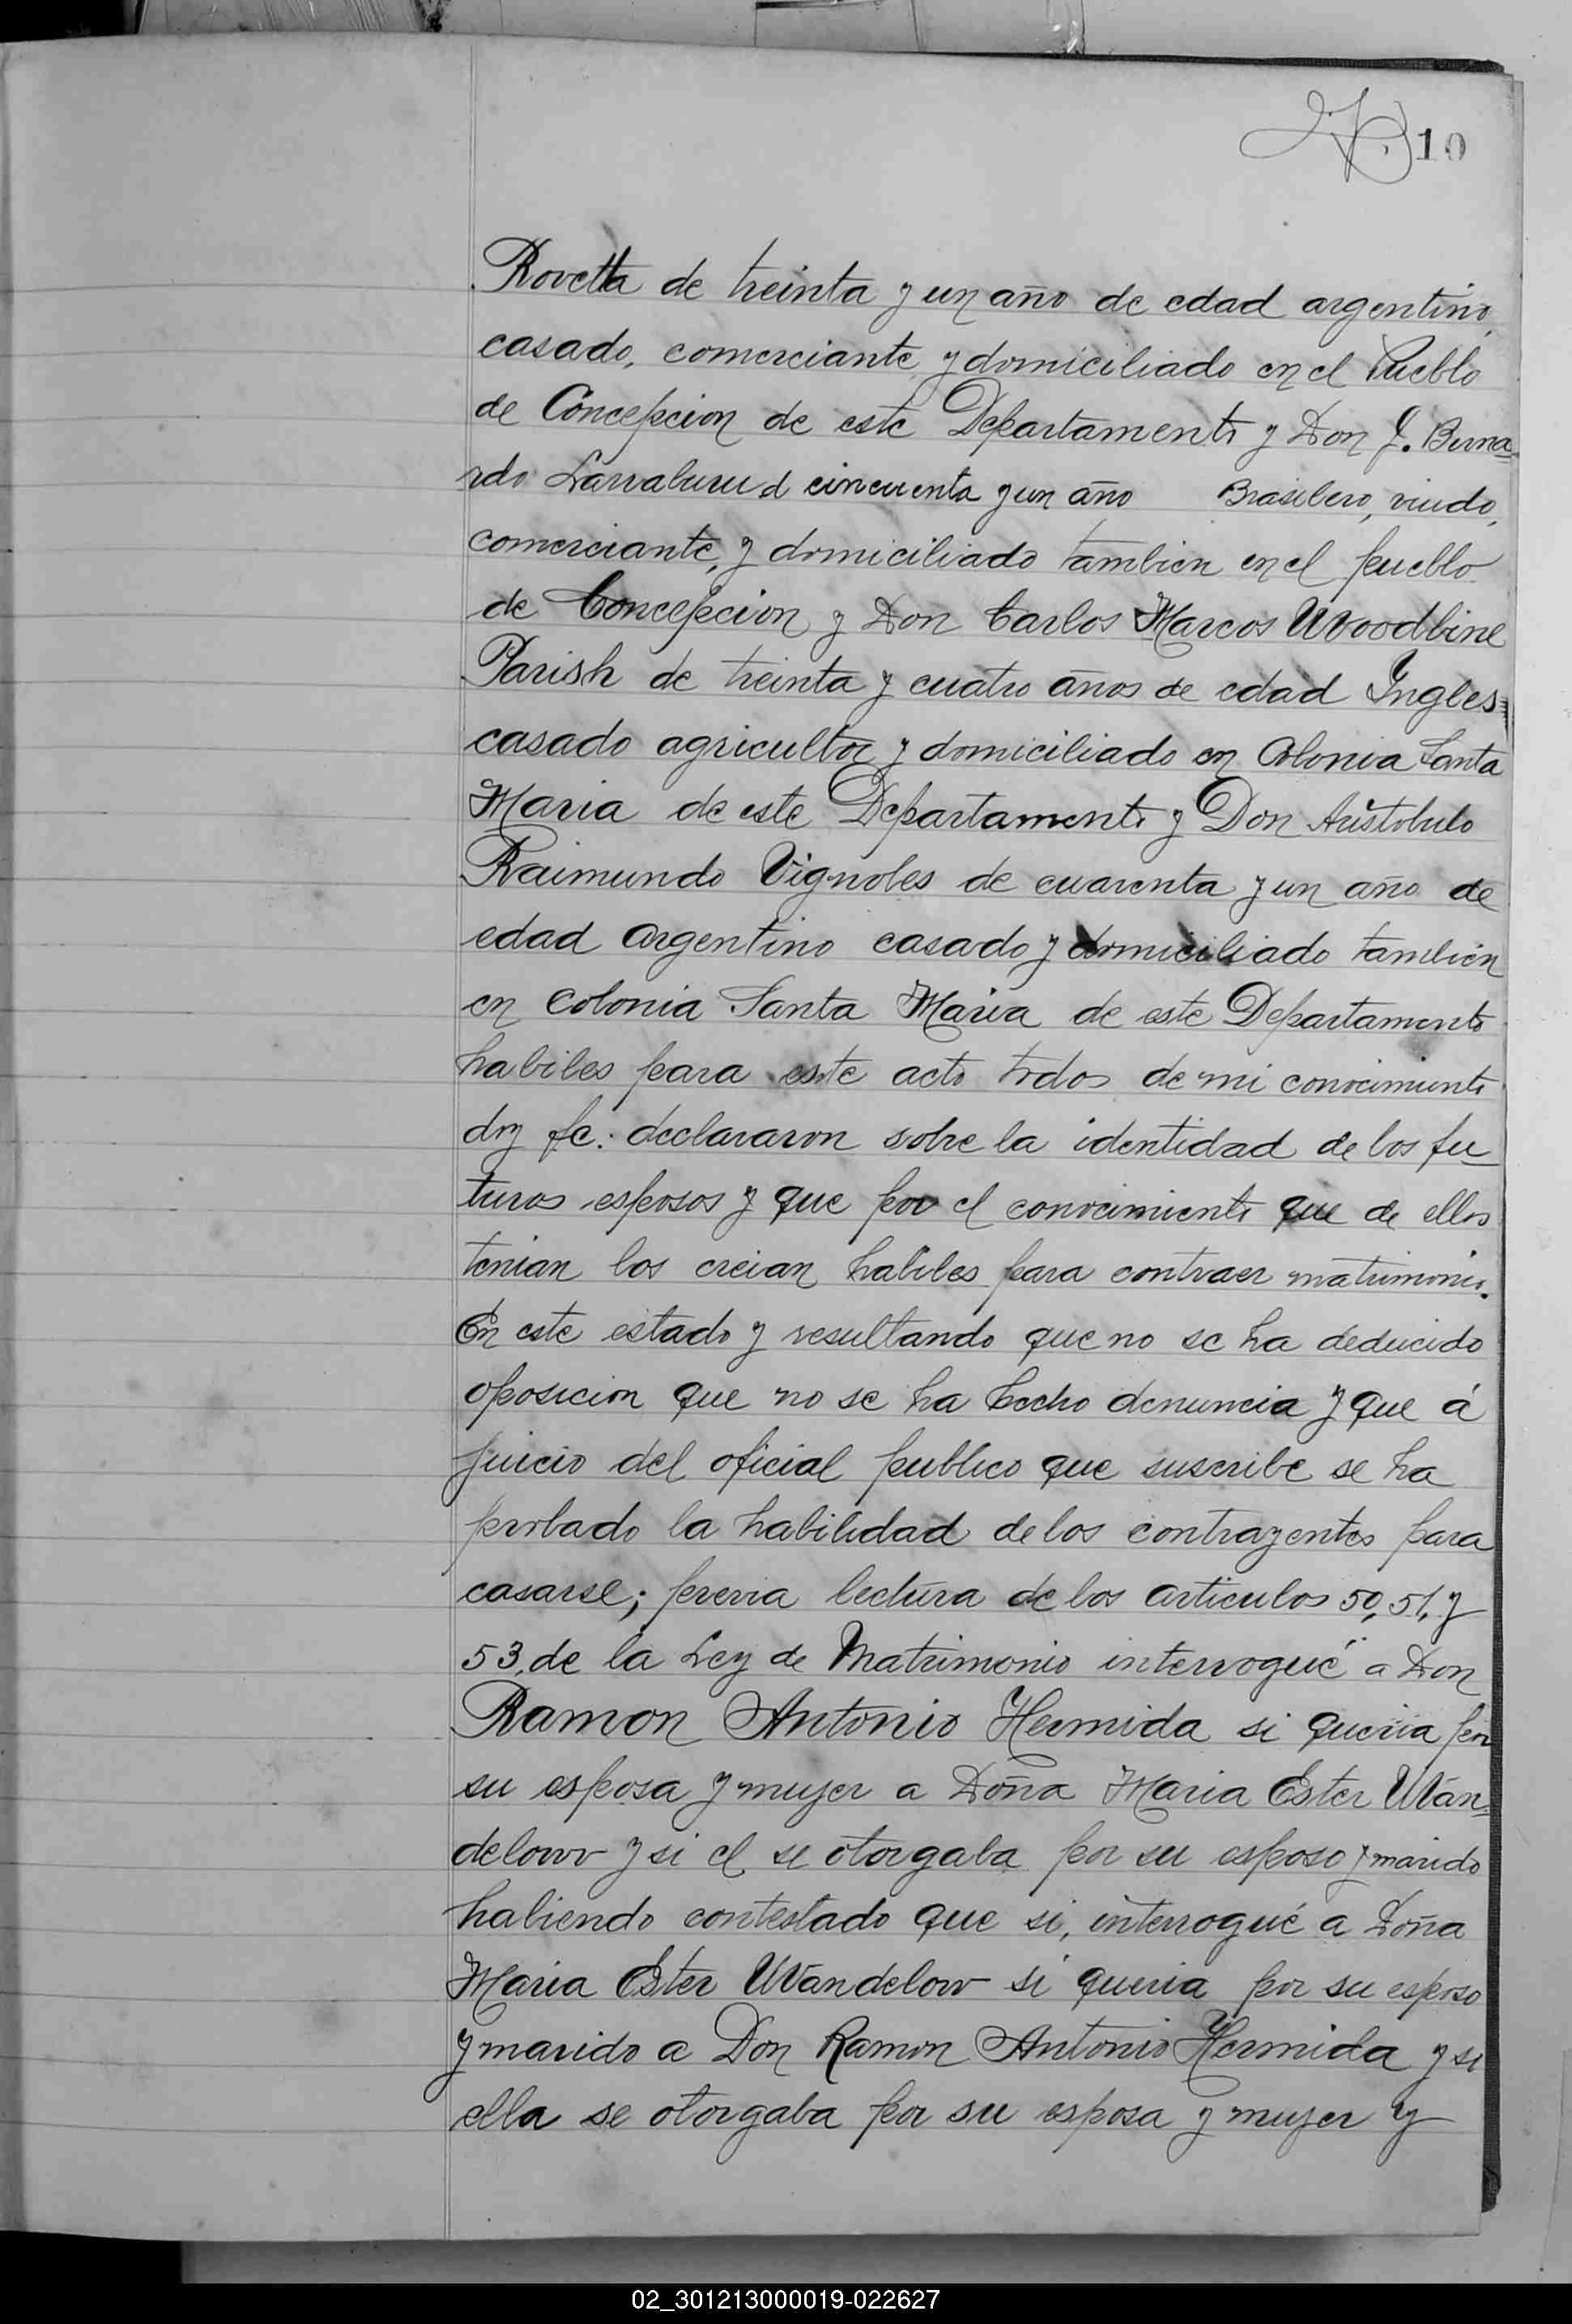 10
Rovetta de treinta y un año de edad argentino,
casado, comerciante y domiciliado en el Pueblo
de Concepcion de este Departamento y Don J. Berna-
rdo Larralburu d cincuenta y un año Brasilero, viudo,
comerciante, y domiciliado tambien en el pueblo
de Concepcion y Don Carlos Marcos Woodbine
Parish de treinta y cuatro años de edad Ingles
casado agricultor y domiciliado en Colonia Santa
Maria de este Departamento y Don Aristobulo
Raimundo Vignoles de cuarenta y un año de
edad argentino casado y domiciliado tambien
en Colonia Santa Maria de este Departamento
habiles para este acto todos de mi conocimiento
doy fe: declararon sobre la identidad de los fu-
turos esposos y que por el conocimiento que de ellos
tenian los creian habiles para contraer matrimonio.
En este estado y resultando que no se ha deducido
oposicion que no se ha hecho denuncia y que á
juicio del oficial publico que suscribe se ha
probado la habilidad de los contrayentes para
casarse; previa lectura de los articulos 50, 51, y
53, de la Ley de Matrimonio interrogué a Don
Ramon Antonio Hermida si queria por
su esposa y mujer a Doña Maria Ester Wan-
delow y si el se otorgaba por su esposo y marido
habiendo contestado que si, interrogué a Doña
Maria Ester Wandelow si queria por su esposo
y marido a Don Ramon Antonio Hermida y si
ella se otorgaba por su esposa y mujer y
02_301213000019-022627